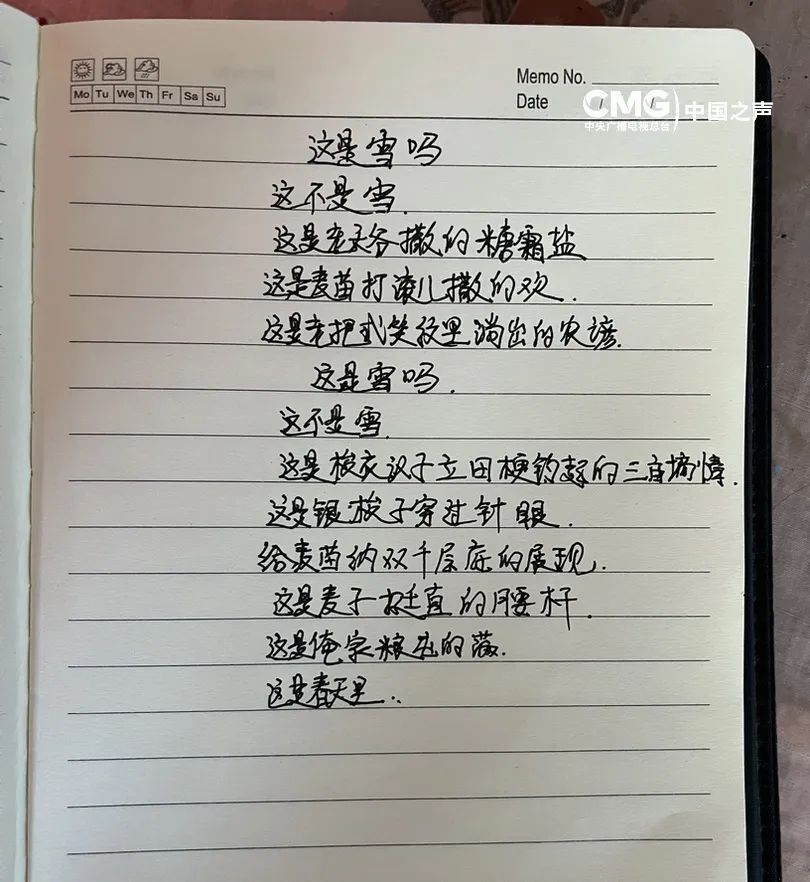 Memo No.
Mo Tu We Th Fr Sa Su
Date / /
CMG 中国之声
中央广播电视总台
这是雪吗
这不是雪.
这是老天爷撒的糖霜盐
这是麦苗打滚儿撒的欢.
这是老把式笑纹里淌出的农谚.
这是雪吗.
这不是雪.
这是 衣汉子立田梗钓起的三亩墒情.
这是银梭子穿过针眼.
给麦苗纳双千层底的展现.
这是麦子挺直的腰杆.
这是俺家粮仓的
这是春天里..